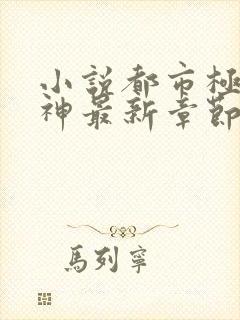 小説都市極
神最新章節
馬列寧